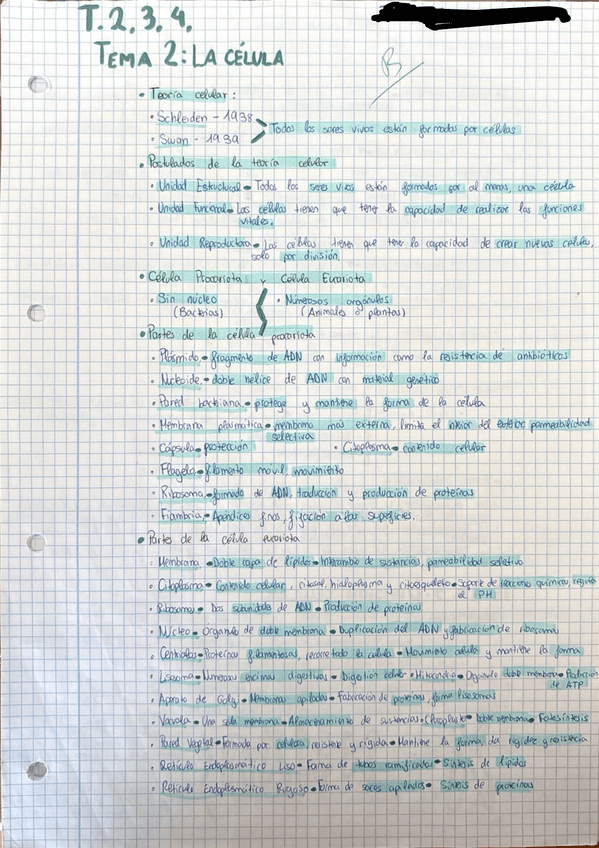 T. 2, 3, 4,
TEMA 2: LA CÉLULA
B
• Teoría celular:
• Schleiden - 1938
• Swan - 1939
> Todos los seres vivos están formados por células
• Postulados de la teoría celular
• Unidad Estructural • Todos los seres vivos están formados por al menos, una célula
• Unidad Funcional • Las células tienen que tener la capacidad de realizar las funciones
vitales.
• Unidad Reproductora • Las células tienen que tener la capacidad de crear nuevas células,
solo por división.
• Célula Procariota y Célula Eucariota
• Sin núcleo { • Numerosos orgánulos
(Bacterias) (Animales o plantas)
• Partes de la célula procariota
• Plásmido • fragmento de ADN con información como la resistencia de antibióticos
• Nucleoide • doble hélice de ADN con material genético
• Pared bacteriana • protege y mantiene la forma de la célula
• Membrana plasmática • membrana más externa, limita el interior del exterior permeabilidad
selectiva
• Cápsula • protección • Citoplasma • contenido celular
• Flagelo • filamento móvil, movimiento
• Ribosoma • formado de ADN, traducción y producción de proteínas
• Fiambria • Apéndices finos, fijación a las superficies.
• Partes de la célula eucariota
• Membrana • Doble capa de lípidos • Intercambio de sustancias, permeabilidad selectiva
• Citoplasma • Contenido celular, citosol, hialoplasma y citoesqueleto • Soporte de reacciones químicas, regula
el PH
• Ribosomas • Dos subunidades de ADN • Producción de proteínas
• Núcleo • Orgánulo de doble membrana • Duplicación del ADN y fabricación de ribosomas
• Centriolos • Proteínas filamentosas, recorre toda la célula • Movimiento celular y mantiene la forma
• Lisosoma • Numerosas enzimas digestivas • Digestión celular • Mitocondria • Orgánulo doble membrana • Producción
de ATP
• Aparato de Golgi • Membrana apiladas • Fabricación de proteínas, forma lisosomas
• Vacuola • Una sola membrana • Almacenamiento de sustancias • Cloroplasto • Doble membrana • Fotosíntesis
• Pared Vegetal • Formada por celulosa, resistente y rígida • Mantiene la forma, da rigidez y resistencia
• Retículo Endoplasmático Liso • Forma de tubos ramificados • Síntesis de lípidos
• Retículo Endoplasmático Rugoso • Forma de sacos apilados • Síntesis de proteínas